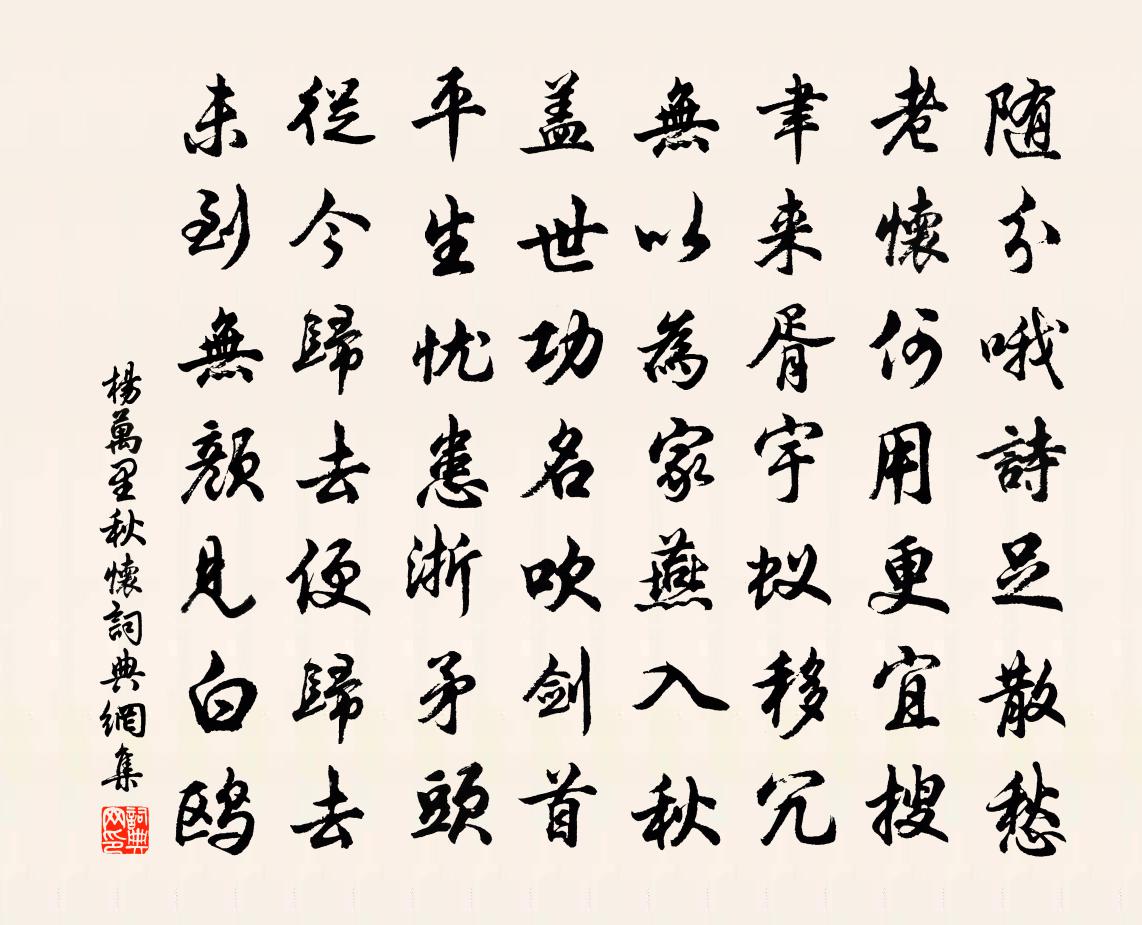 随分哦詩足散愁
老懷何用更宜搜
聿来胥宇蚁移冗
無以為家燕入秋
盖世功名吹剑首
平生忧患淅矛頭
從今歸去便歸去
未到無顔見白鸥
楊萬里秋懷詞典網集
詞典网印